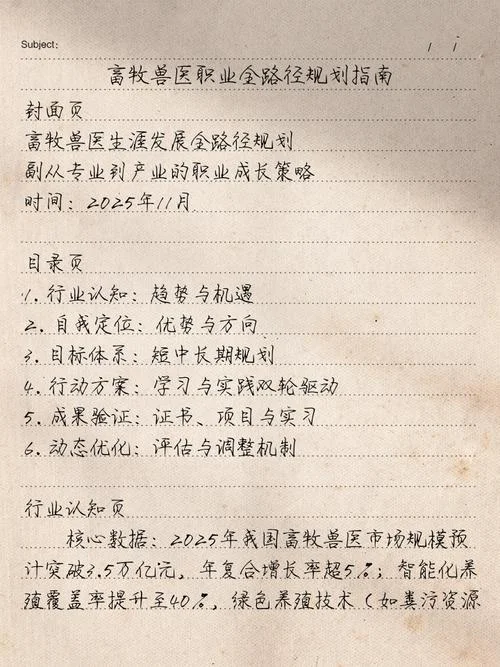 Subject:
/ /
畜牧兽医职业全路径规划指南
封面页
畜牧兽医生涯发展全路径规划
副从专业到产业的职业成长策略
时间：2025年11月
目录页
1.行业认知：趋势与机遇
2.自我定位：优势与方向
3.目标体系：短中长期规划
4.行动方案：学习与实践双轮驱动
5.成果验证：证书、项目与实习
6.动态优化：评估与调整机制
行业认知页
核心数据：2025年我国畜牧兽医市场规模预
计突破3.5万亿元，年复合增长率超5%；智能化养
殖覆盖率提升至40%，绿色养殖技术（如粪污资源